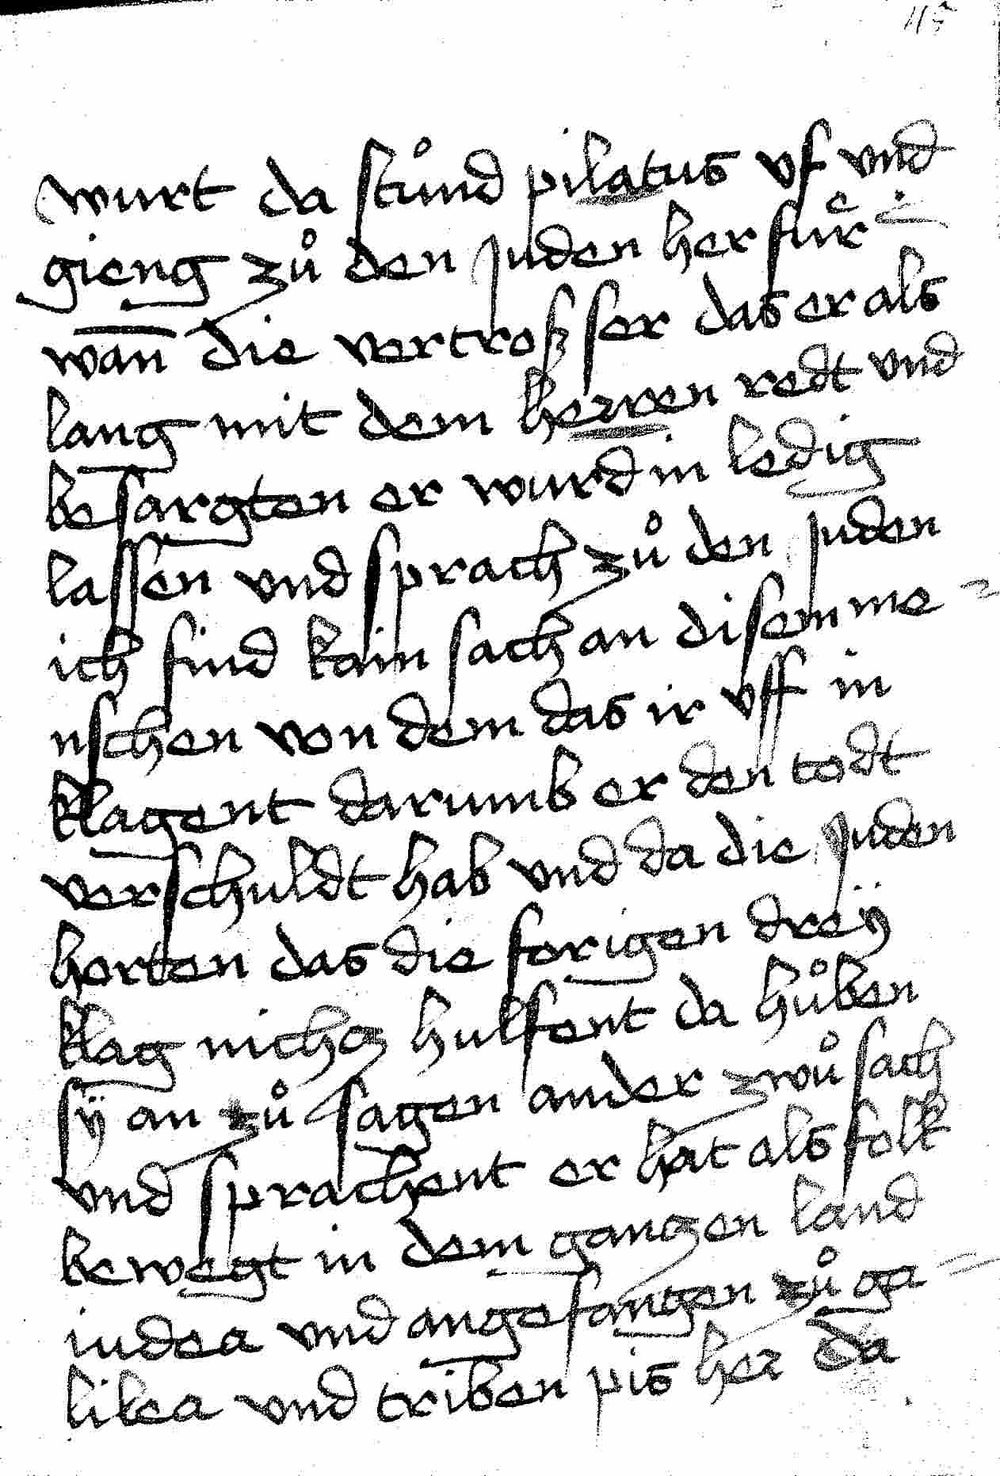 115
wurt da stůnd pilatus vf vnd
gieng zů den Juden her fuͤr
wan̄ die vertroß ser das er als
lang mit dem herren redt vnd
besargten er wurd in ledig
lassen vnd sprach zů den Juden
ich find kain sach an disem me=
nschen von dem das ir vff in
klagent darumb er den todt
verschuldt hab vnd da die Juden
horten das die forigen dreÿ
klag nichcz hulfent da hůben
sÿ an zů sagen ander zwů sach
vnd sprachent er hat als folk
bewegt in dem ganczen land
iudea vnd angefangen zů ga=
lilea vnd triben pis her da